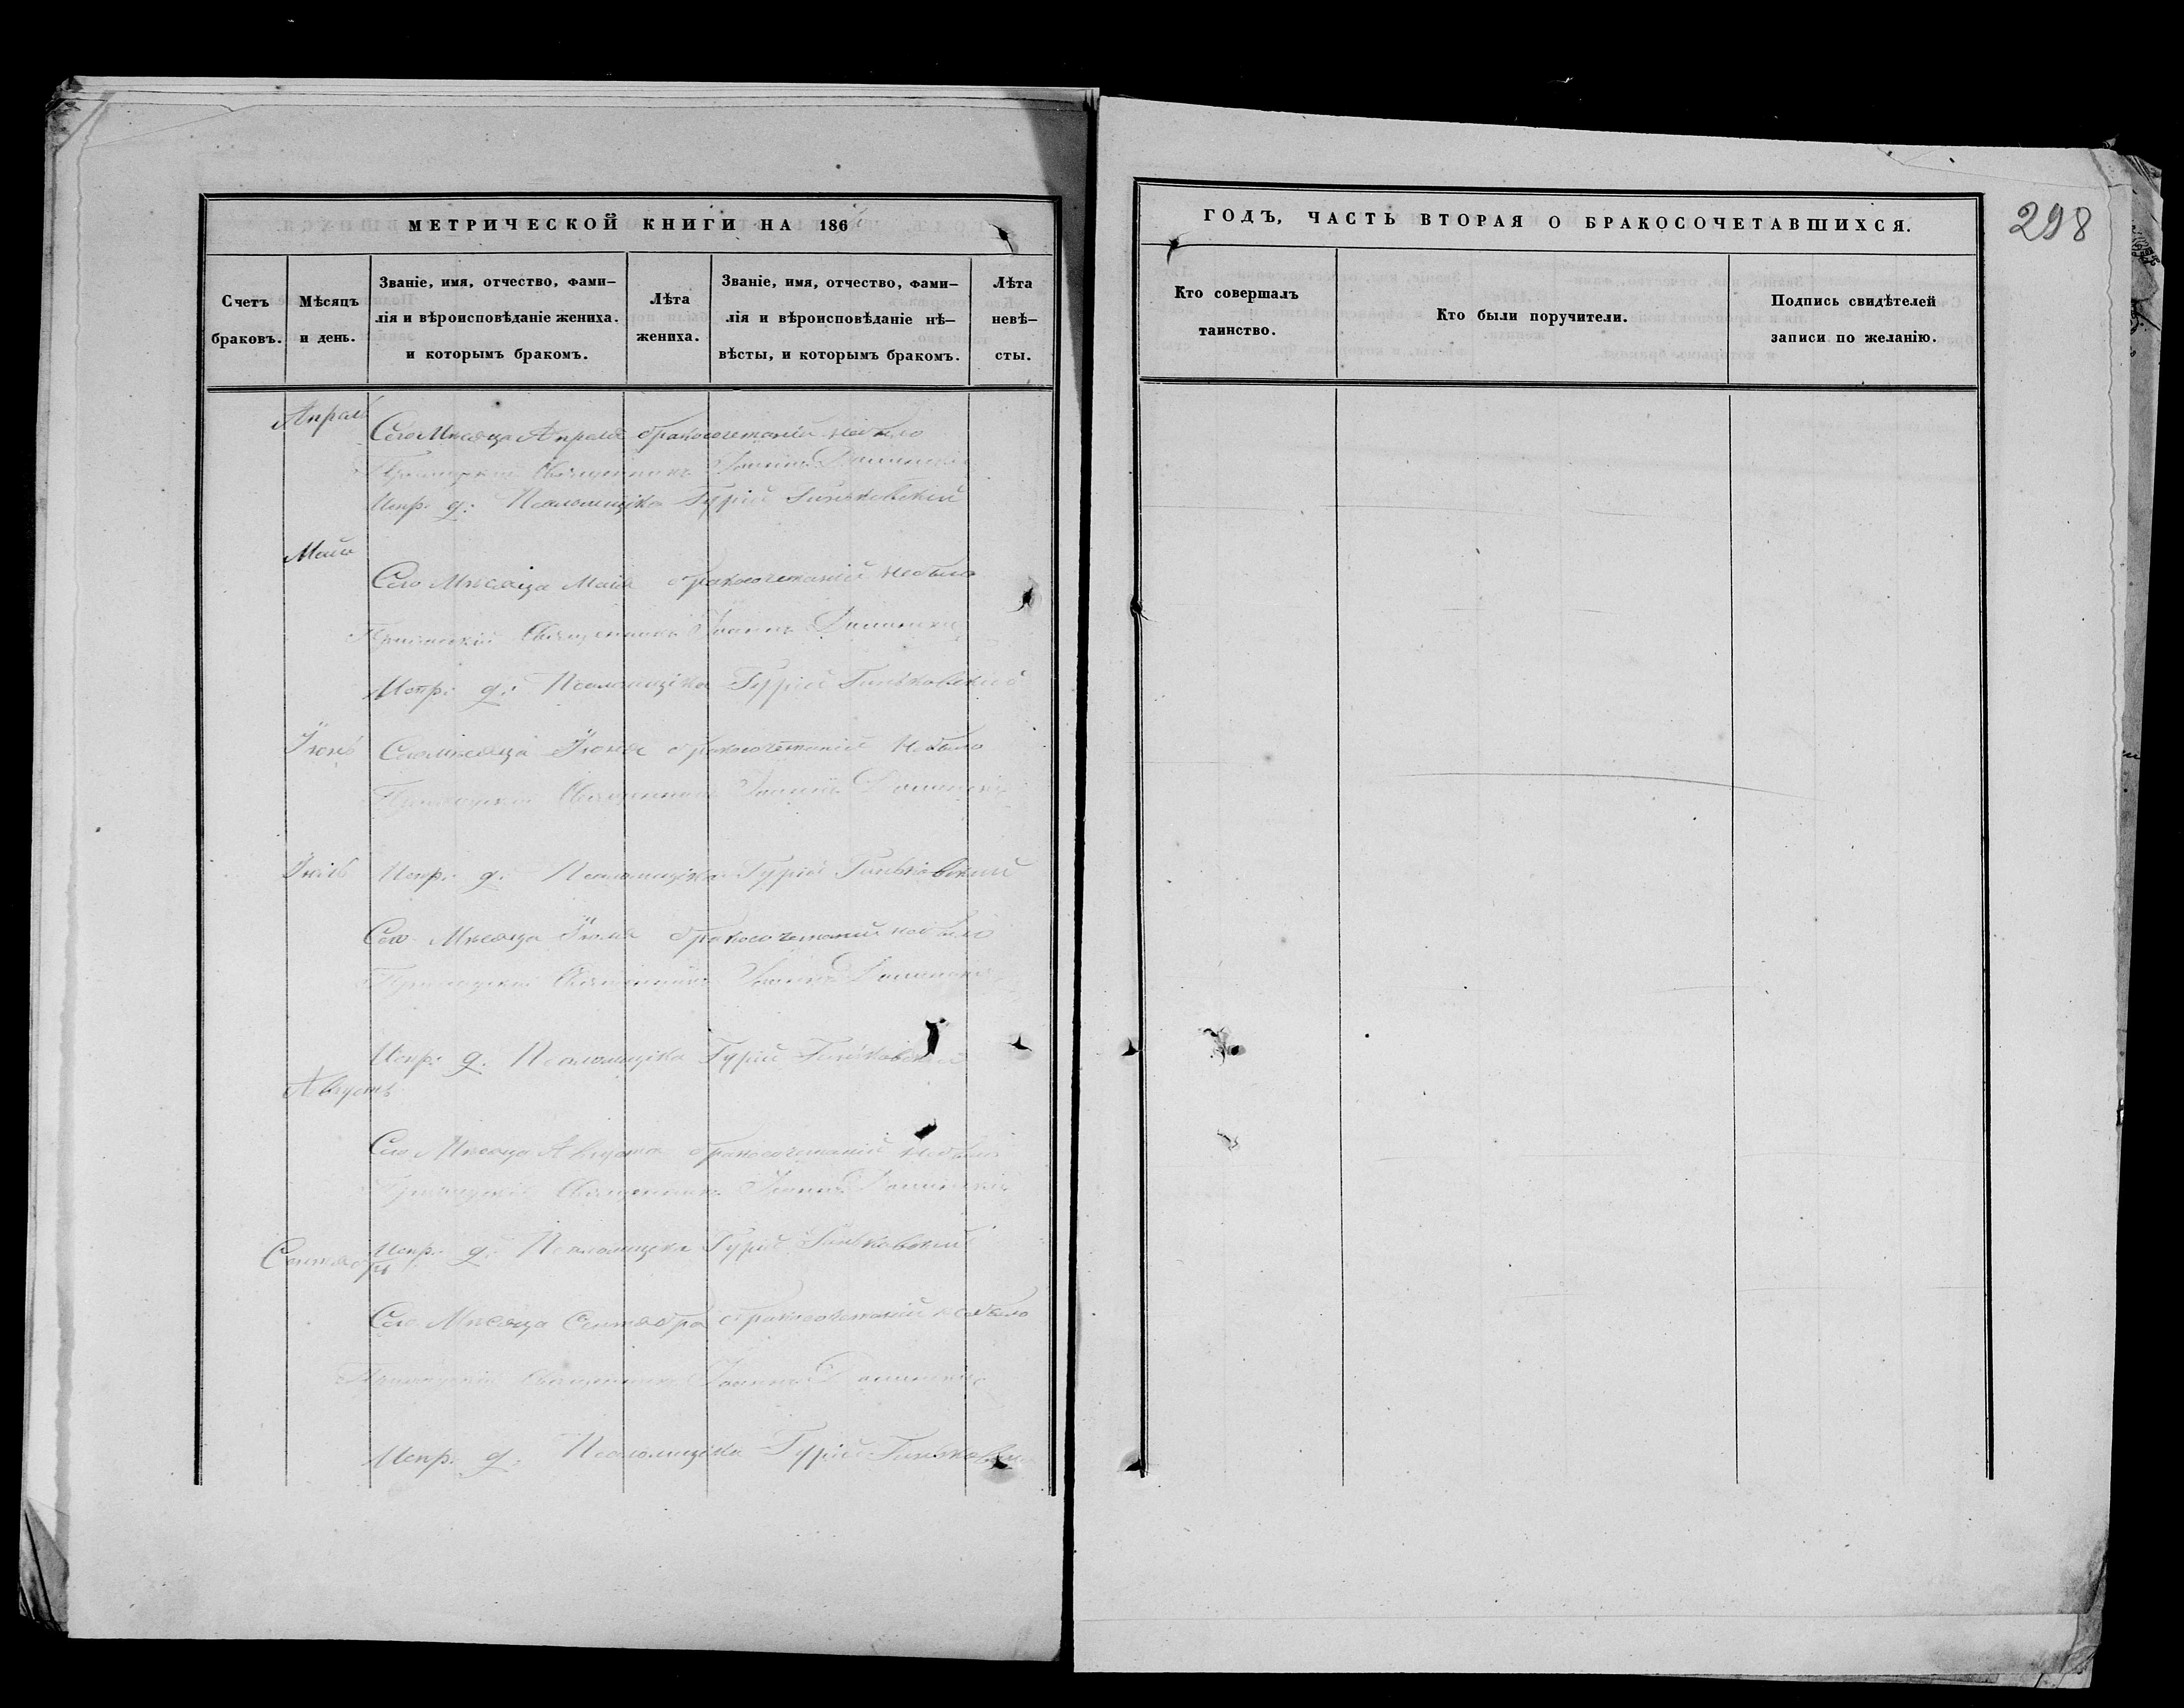 МЕТРИЧЕСКОЙ КНИГИ НА 186
Счетъ браковъ.
Мѣсяцъ и день.
Званіе, имя, отчество, фами-
лія и вѣроисповѣданіе жениха.
и которымъ бракомъ.
Лѣта жениха.
Званіе, имя, отчество, фами-
лія и вѣроисповѣданіе нѣ-
вѣсты, и которымъ бракомъ.
Лѣта невѣ-
сты.
Апрель
Сего Мѣсяца Апреля бракосочетаній небыло
Приходскій Священникъ Іоаннъ
Испр: д: Псаломщика Гурій Гиньковскій
Май
Сего Мѣсяца Маія бракосочетаній небыло
Приходскій Священникъ Іоаннъ
Испр: д: Псаломщика Гурій Гиньковскій
Іюнь
Сего мѣсяца Іюня бракосочетаній небыло
Приходскій Священникъ Іоаннъ
Іюль
Испр: д: Псаломщика Гурій Гиньковскій
Сего Мѣсяца Іюля бракосочетаній небыло
Приходскій Священникъ Іоаннъ
Испр: д: Псаломщика Гурій Гиньковскій
Августъ
Сего Мѣсяца Августа бракосочетаній небыло
Приходскій Священникъ Іоаннъ
Испр: д: Псаломщика Гурій Гиньковскій
Сентябрь
Сего Мѣсяца Сентября бракосочетаній небыло
Приходскій Священникъ Іоаннъ
Испр: д: Псаломщика Гурій Гиньковскій
ГОДЪ, ЧАСТЬ ВТОРАЯ О БРАКОСОЧЕТАВШИХСЯ.
298
Кто совершалъ
таинство.
Кто были поручители.
Подпись свидѣтелей
записи по желанію.